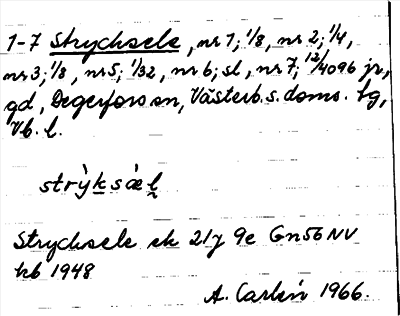 1-7 Strycksele, nr 1; 1/8, nr 2; 1/4,
nr 3; 1/8, nr 5; 1/32, nr 6; sl, nr 7; 12/4096 jr,
gd, Degerfors sn, Västerb. s. doms. tg,
Vb. l.
strỳksǽl
Strycksele ek 21J 9e Gn56NV
hb 1948
A. Carlén 1966.